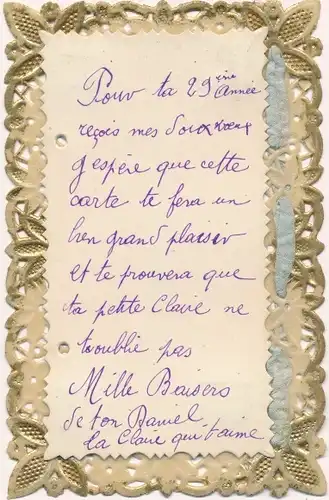 Pour ta 29ème année
reçois mes doux vœux
j'espère que cette
carte te fera un
bien grand plaisir
et te prouvera que
ta petite Claire ne
t'oublie pas
Mille Baisers
de ton
La Claire qui t'aime